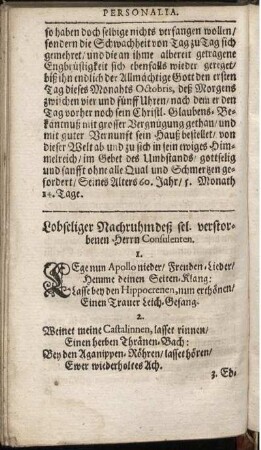 PERSONALIA.
so haben doch selbige nichts verfangen wollen/
sondern die Schwachheit von Tag zu Tag sich
gemehret/ und die an ihme albereit getragene
Engbrüstigkeit sich ebenfalls wieder gereget/
biß ihn endlich der Allmächtige Gott den ersten
Tag dieses Monahts Octobris, deß Morgens
zwischen vier und fünff Uhren/ nach dem er den
Tag vorher noch sein Christl. Glaubens-Be-
käntnuß mit grosser Vergnügung gethan/ und
mit guter Vernunft sein Hauß bestellet/ von
dieser Welt ab und zu sich in sein ewiges Him-
melreich/ im Gebet des Umbstands/ gottselig
und sanfft ohne alle Qual und Schmertzen ge-
fordert/ Seines Alters 60. Jahr/ 5. Monath
14. Tage.
Lobseliger Nachruhm deß sel. verstor-
benen Herrn Consulenten.
1.
LEge nun Apollo nieder/ Freuden-Lieder/
Hemme deinen Seiten-Klang:
Lasse bey den Hippocrenen, nun erthönen/
Einen Trauer Leich-Gesang.
2.
Weinet meine Castalinnen, lasset rinnen/
Einen herben Thränen-Bach:
Bey den Aganippen-Röhren/ lasset hören/
Ewer wiederholtes Ach.
3. Ed-